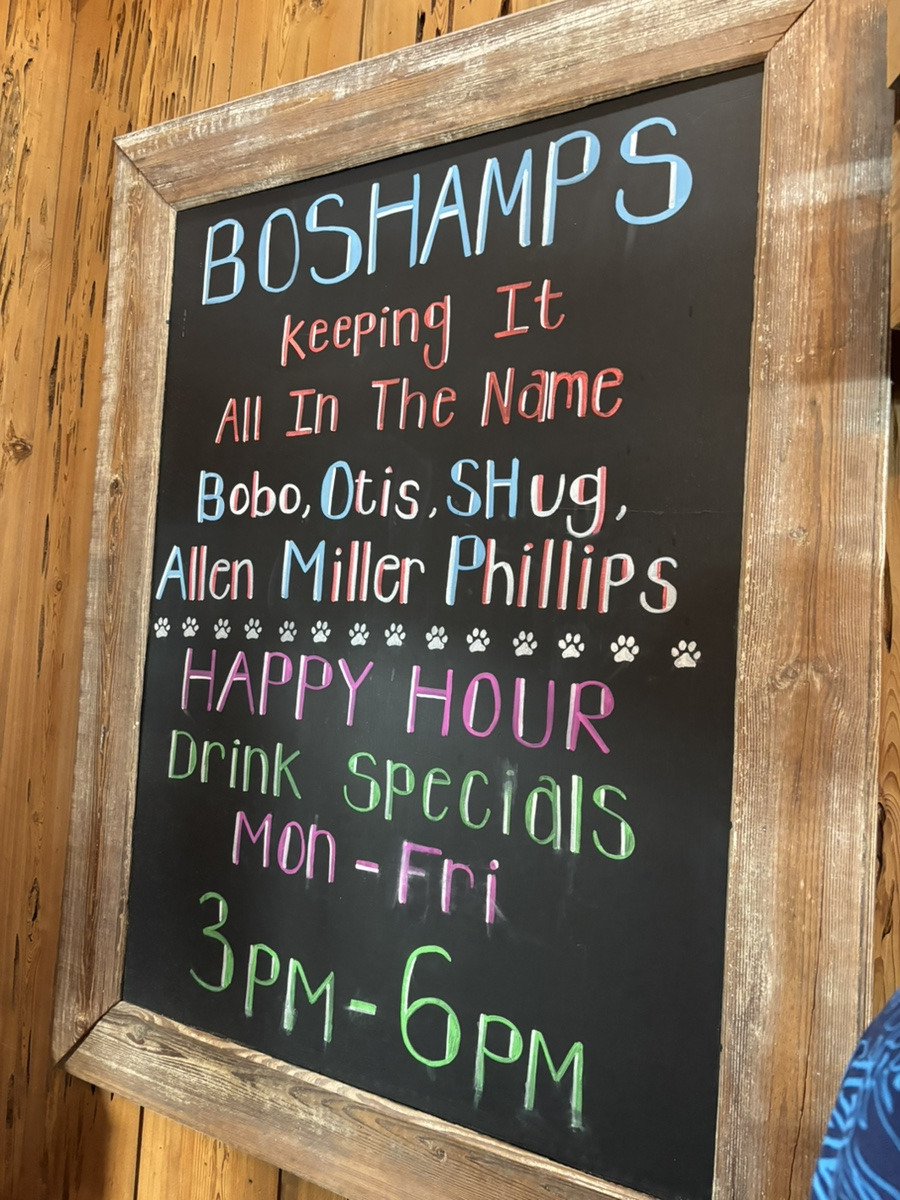 BOSHAMPS
Keeping It
All In The Name
Bobo, Otis, SHug,
Allen Miller Phillips
HAPPY HOUR
Drink Specials
Mon - Fri
3PM - 6PM